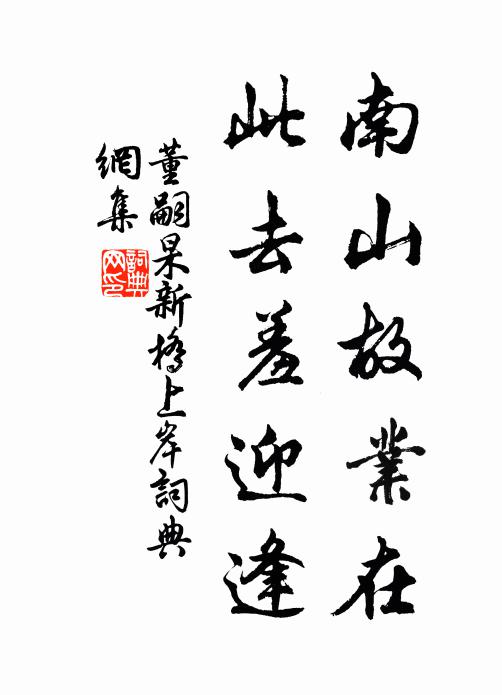 南山故業在
此去羞迎逢
董嗣杲新橋上岸詞典
網集
詞典
网印